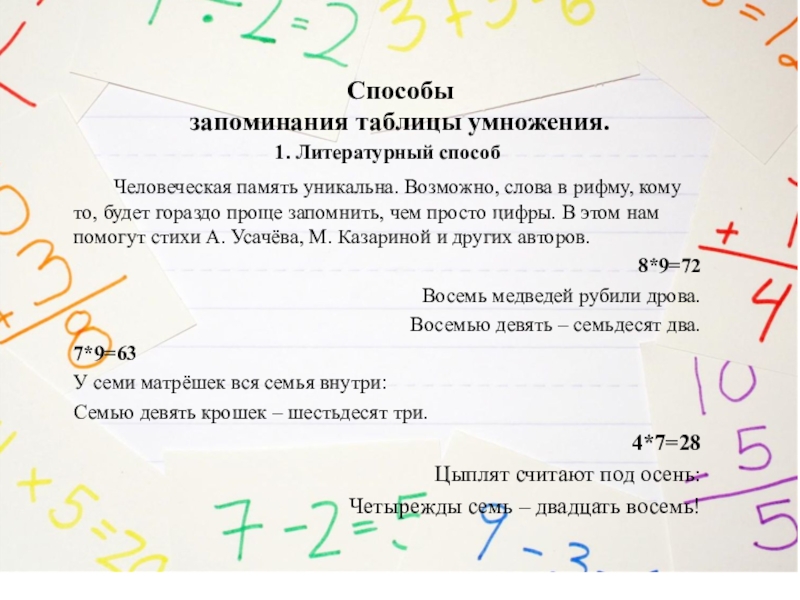 7÷2=2
3+3-6
=12
Способы
запоминания таблицы умножения.
1. Литературный способ
Человеческая память уникальна. Возможно, слова в рифму, кому
то, будет гораздо проще запомнить, чем просто цифры. В этом нам
помогут стихи А. Усачёва, М. Казариной и других авторов.
8*9=72
Восемь медведей рубили дрова.
Восемью девять – семьдесят два.
7*9=63
У семи матрёшек вся семья внутри:
Семью девять крошек – шестьдесят три.
4*7=28
Цыплят считают под осень:
Четырежды семь – двадцать восемь!
3
+
8
+
4
10
- 5
5
+5=20
7-2=5
9-3=